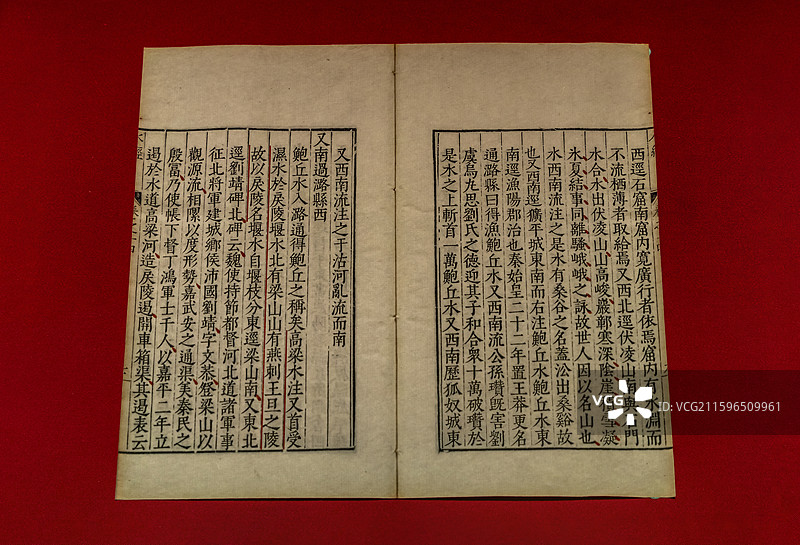 西逕石窟南窟內寬廣行者依焉窟內有水淵而
不流栖薄者取給焉又西北逕伏凌山南與門
水合水出伏凌山山高峻巖鄣寒深陰崖雪凝
氷夏結事同離騷峨峨之詠故世人因以名山也
水西南流注之是水有桑谷之名蓋㳂出桑谿故
也又西南逕獷平城東南而右注鮑丘水鮑丘水東
南逕漁陽郡治也秦始皇二十二年置王莽更名
通潞縣曰得漁鮑丘水又西南流公孫瓚旣害劉
虞烏丸思劉氏之德迎其子和合衆十萬破瓚於
是水之上斬首一萬鮑丘水又西南歷狐奴城東
又西南流注之于沽河亂流而南
又南過潞縣西
鮑丘水入潞通得鮑丘之稱矣高梁水注又首受
濕水於戾陵堰水北有梁山山有燕刺王旦之陵
故以戾陵名堰水自堰枝分東逕梁山南又東北
逕劉靖碑北碑云魏使持節都督河北道諸軍事
征北將軍建城鄉侯沛國劉靖字文恭登梁山以
觀源流相㶟以度形勢嘉武安之通渠羡秦民之
殷富乃使帳下督丁鴻軍士千人以嘉平二年立
遏於水道高梁河造戾陵遏開車箱渠其遏表云
VCG
VCG211596509961